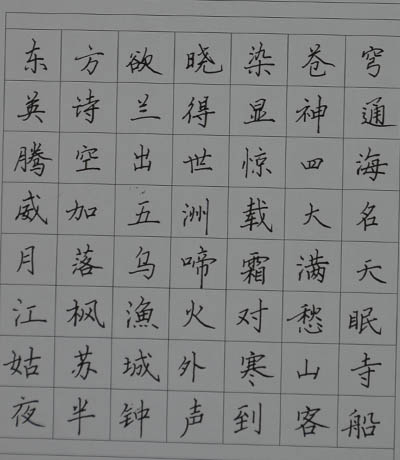 东方欲晓染苍穹
英诗兰得显神通
腾空出世惊四海
威加五洲载大名
月落乌啼霜满天
江枫渔火对愁眠
姑苏城外寒山寺
夜半钟声到客船